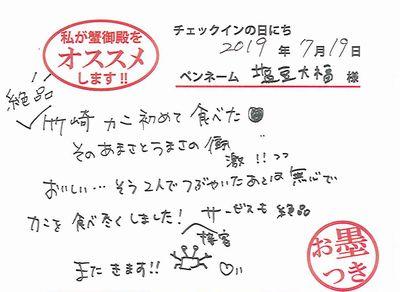 私が蟹御殿を
オススメ
します!!
チェックインの日にち
2019年7月19日
ペンネーム 塩豆大福 様
絶品
竹崎カニ初めて食べた
そのあまさとうまさの衝
激!!
おいしい…そう2人でつぶやいたあとは無心で
カニを食べ尽くしました! サービスも絶品
接客
またきます!!
お墨
つき